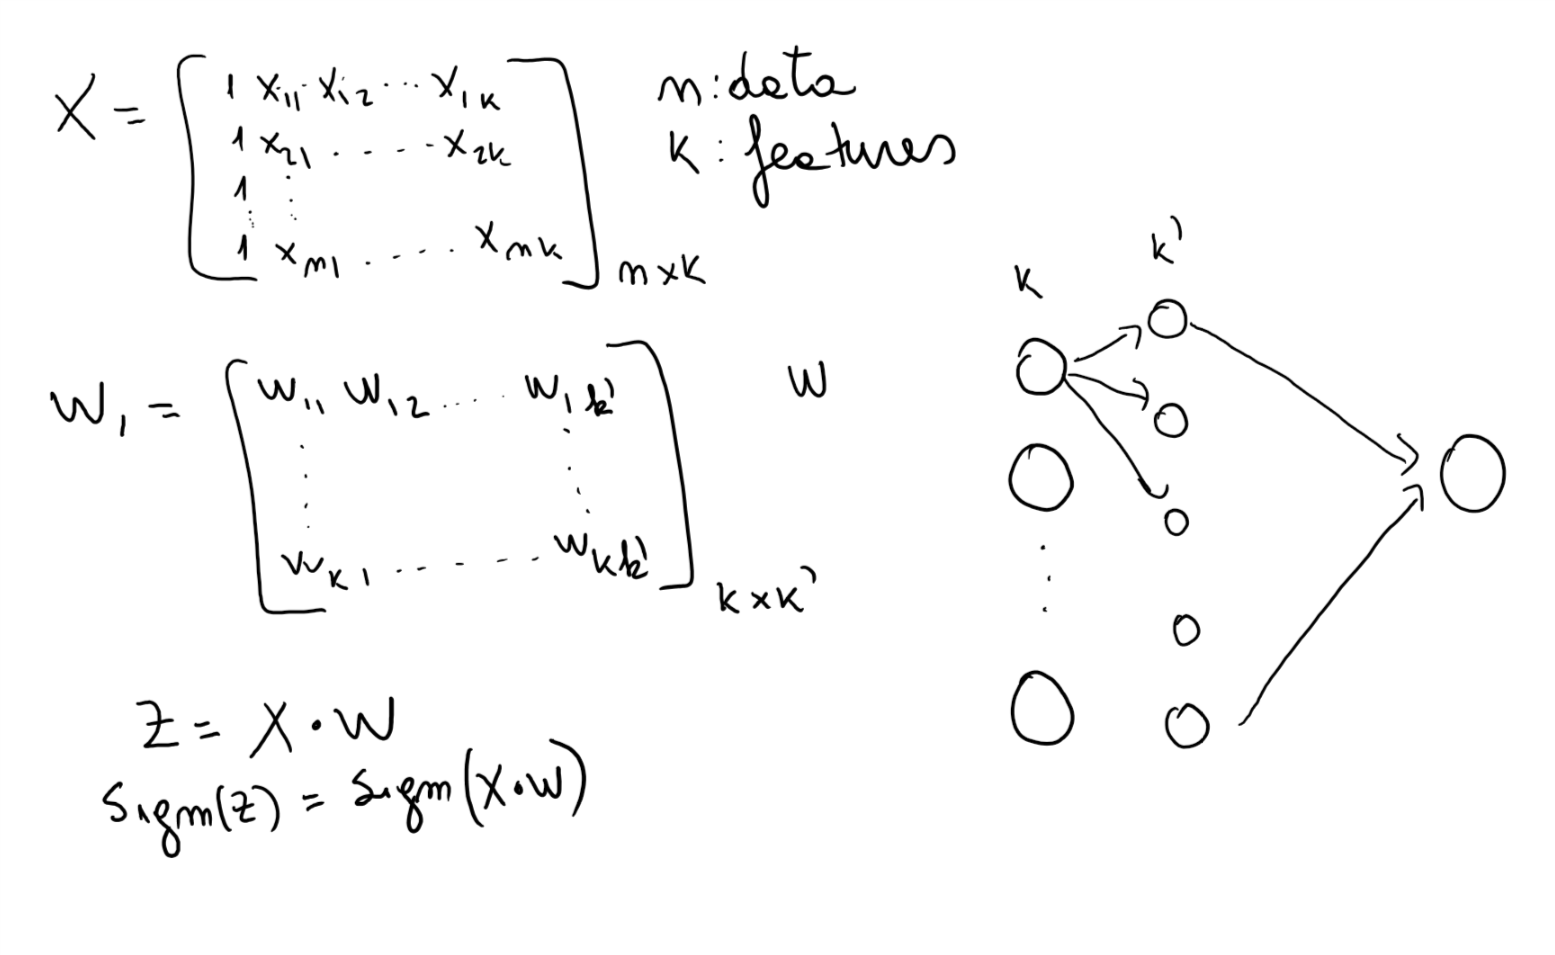 X = [ 1 x₁₁ x₁₂ ... x₁ₖ
1 x₂₁ . - - - x₂ₖ
1 ⋮
1 xₙ₁ . . . . . xₙₖ ] n×k
n: data
k: features
W₁ = [ w₁₁ w₁₂ ..... w₁ₖ'
⋮ ⋮
wₖ₁ .. - - - wₖₖ' ] k×k'
W
Z = X · W
Sigm(Z) = Sigm(X·W)
k
k'